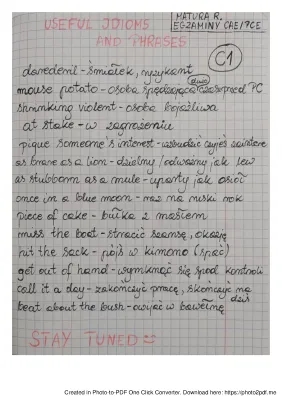 USEFUL IDIOMS
AND PHRASES
MATURA R.
EGZAMINY CAE/PCE
C1
daredevil - śmiałek, ryzykant
mouse potato - osoba spędzająca dużo czasu przed PC
shrinking violent - osoba bojaźliwa
at stake - w zagrożeniu
pique someone's interest - wzbudzić czyjeś zainteres
as brave as a lion - dzielny/odważny jak lew
as stubborn as a mule - uparty jak osioł
once in a blue moon - raz na ruski rok
piece of cake - bułka z masłem
miss the boat - stracić szansę, okazję
hit the sack - pójść w kimono (spać)
get out of hand - wymknąć się spod kontroli
call it a day - zakończyć pracę, skończyć na dziś
beat about the bush - owijać w bawełnę
STAY TUNED
Created in Photo-to-PDF One Click Converter. Download here: https://photo2pdf.me